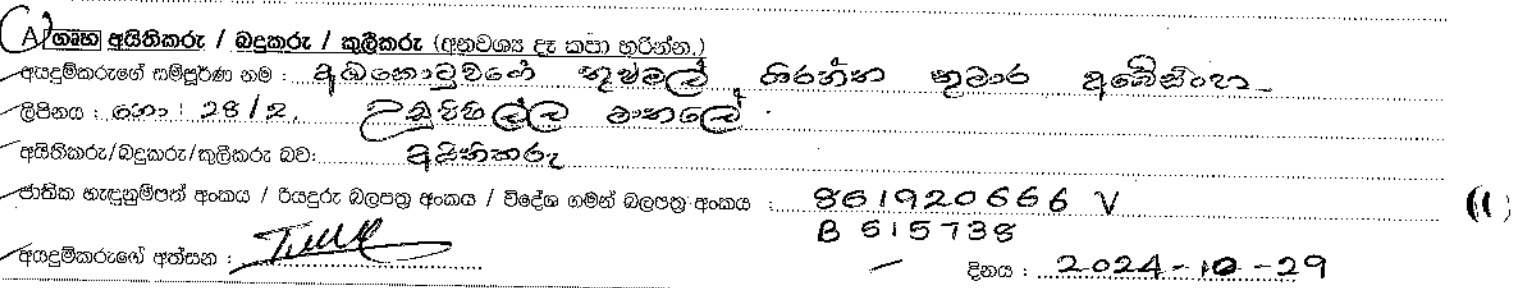 (A) ගෘහ අයිතිකරු / බදුකරු / කුලීකරු (අනවශ්‍ය දෑ කපා හරින්න.)
අයදුම්කරුගේ සම්පූර්ණ නම : අඹකොටුවගේ නුවමල් ගිරහන කුමාර අබේසිංහ
ලිපිනය : නො : 28/2, උසුපිහිල්ල මාතලේ .
අයිතිකරු/බදුකරු/කුලීකරු බව: අයිතිකරු
ජාතික හැඳුනුම්පත් අංකය / රියදුරු බලපත්‍ර අංකය / විදේශ ගමන් බලපත්‍ර අංකය : 861920666 V (1)
B 515738
අයදුම්කරුගේ අත්සන :
දිනය : 2024-10-29